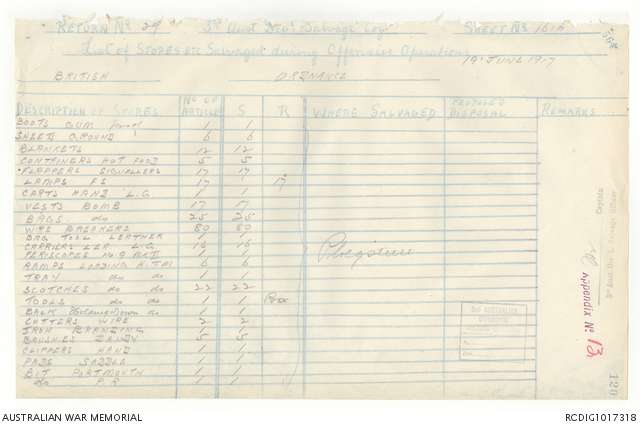 RETURN No 29 3rd Aust Divl Salvage Coy SHEET No 161A
List of STORES etc Salvaged during Offensive Operations
19 JUNE 1917
BRITISH ORDNANCE
DESCRIPTION OF STORES No OF ARTICLES S R WHERE SALVAGED PROPOSED DISPOSAL REMARKS
BOOTS GUM 1 1
SHEETS GROUND 6 6
BLANKETS 12 12
CONTAINERS HOT FOOD 5 5
FLAPPERS SIGNALLERS 17 17
LAMPS FS 17 1
CARTS HAND L.G. 1 1
VESTS BOMB 17 17
BAGS do 25 25
WIRE BREAKERS 89 89
BAG TOOL LEATHER 1 1
CARRIERS L.G. 16 16
PERISCOPES No 9 MK II 1 1
RAMPS LOADING H.T.M. 6 6
TRAY do do 1 1
SCOTCHES do do 22 22
TOOLS do do 1 Box
BACK do 1 1
CUTTERS WIRE 2 2
IRON BRANDING 1 1
BRUSHES DANDY 5 5
CLIPPERS HAND 1 1
PADS SADDLE 1 1
BIT PORTMOUTH 1 1
do P.R 1 1
Ploegsteert
Captain
3rd Aust Div'l Salvage Officer
Appendix No 13
120
AUSTRALIAN WAR MEMORIAL RCDIG1017318